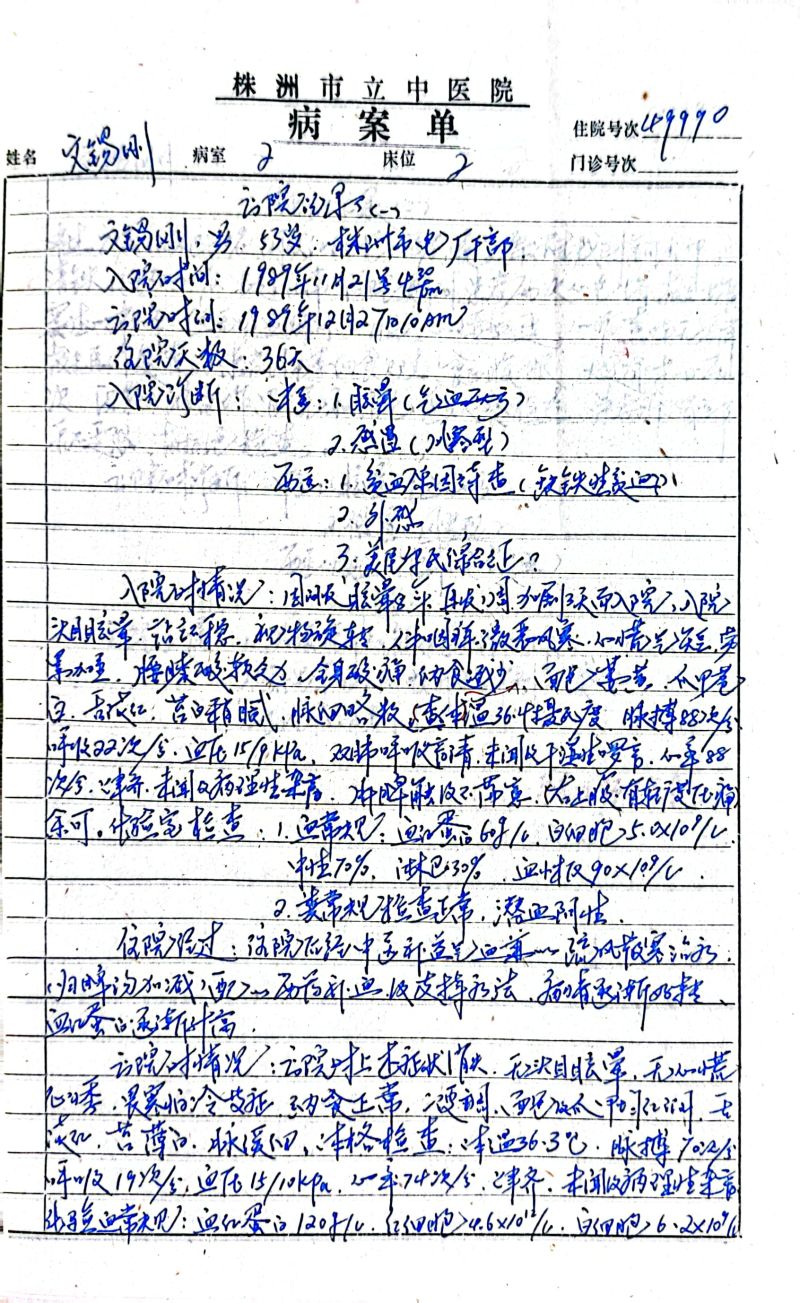 株洲市立中医院
病案单
住院号次 49990
姓名 文锡刚 病室 2 床位 2 门诊号次
出院记录(一)
文锡刚,男,53岁,株洲市电厂干部.
入院时间:1989年11月21号4 pm
出院时间:1989年12月27日10Am
住院天数:36天
入院诊断:中医:1.眩晕(气血两亏)
2.感冒(风寒型)
西医:1.贫血原因待查(缺铁性贫血?)
2.外感
3.美尼尔氏综合征?
入院时情况:因反复眩晕8年,再发1周加剧3天而入院,入院
头目眩晕,站立不稳,视物旋转,微恶风寒,心慌气短,劳
累加重,腰膝酸软乏力,全身酸痛,纳食减少,面色萎黄,爪甲苍
白,舌淡红,苔白稍腻,脉细略数,查体温36.4摄氏度 脉搏88次/分
呼吸22次/分,血压15/9kPa,双肺呼吸音清,未闻及干湿性罗音,心率88
次/分,律齐,未闻及病理性杂音,肝脾触及不满意,右上腹有轻度压痛
余可。化验室检查:1.血常规:血红蛋白60g/L,白细胞5.0×10⁹/L
中性70%,淋巴30%,血小板90×10⁹/L
2.粪常规检查正常,潜血阴性.
住院经过:住院后经中医补益气血兼以疏风散寒治疗,
(归脾汤加减)配以西药补血及支持疗法,病情逐渐好转,
血红蛋白逐渐升高.
出院时情况:出院时上述症状消失,无头目眩晕,无心慌
心悸,畏寒怕冷等症,纳食正常,二便调,面色及爪甲红润,舌
淡红,苔薄白,脉缓细,体格检查:体温36.3℃,脉搏70次/分
呼吸19次/分,血压15/10kPa,心率74次/分,律齐,未闻及病理性杂音
化验血常规:血红蛋白120g/L,红细胞4.6×10¹²/L,白细胞6.2×10⁹/L